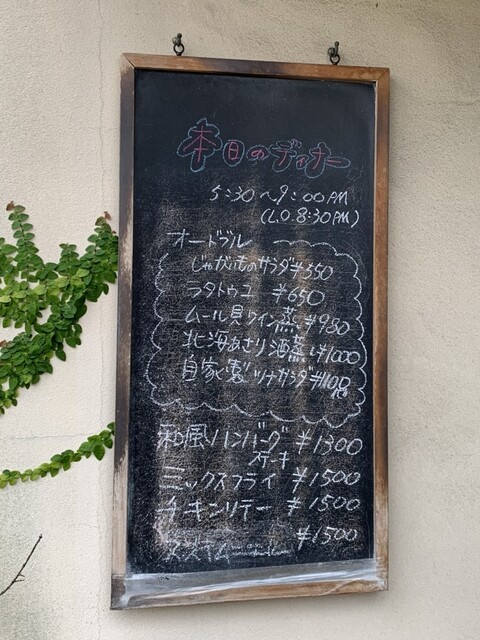 本日のディナー
5:30～9:00PM
(L.O.8:30PM)
オードブル
じゃがいものサラダ ¥350
ラタトウユ ¥650
ムール貝ワイン蒸 ¥980
北海あさり酒蒸し ¥1000
自家製ツナサラダ ¥1100
和風ハンバーグ ¥1300
ステーキ
ミックスフライ ¥1500
チキンソテー ¥1500
¥1500